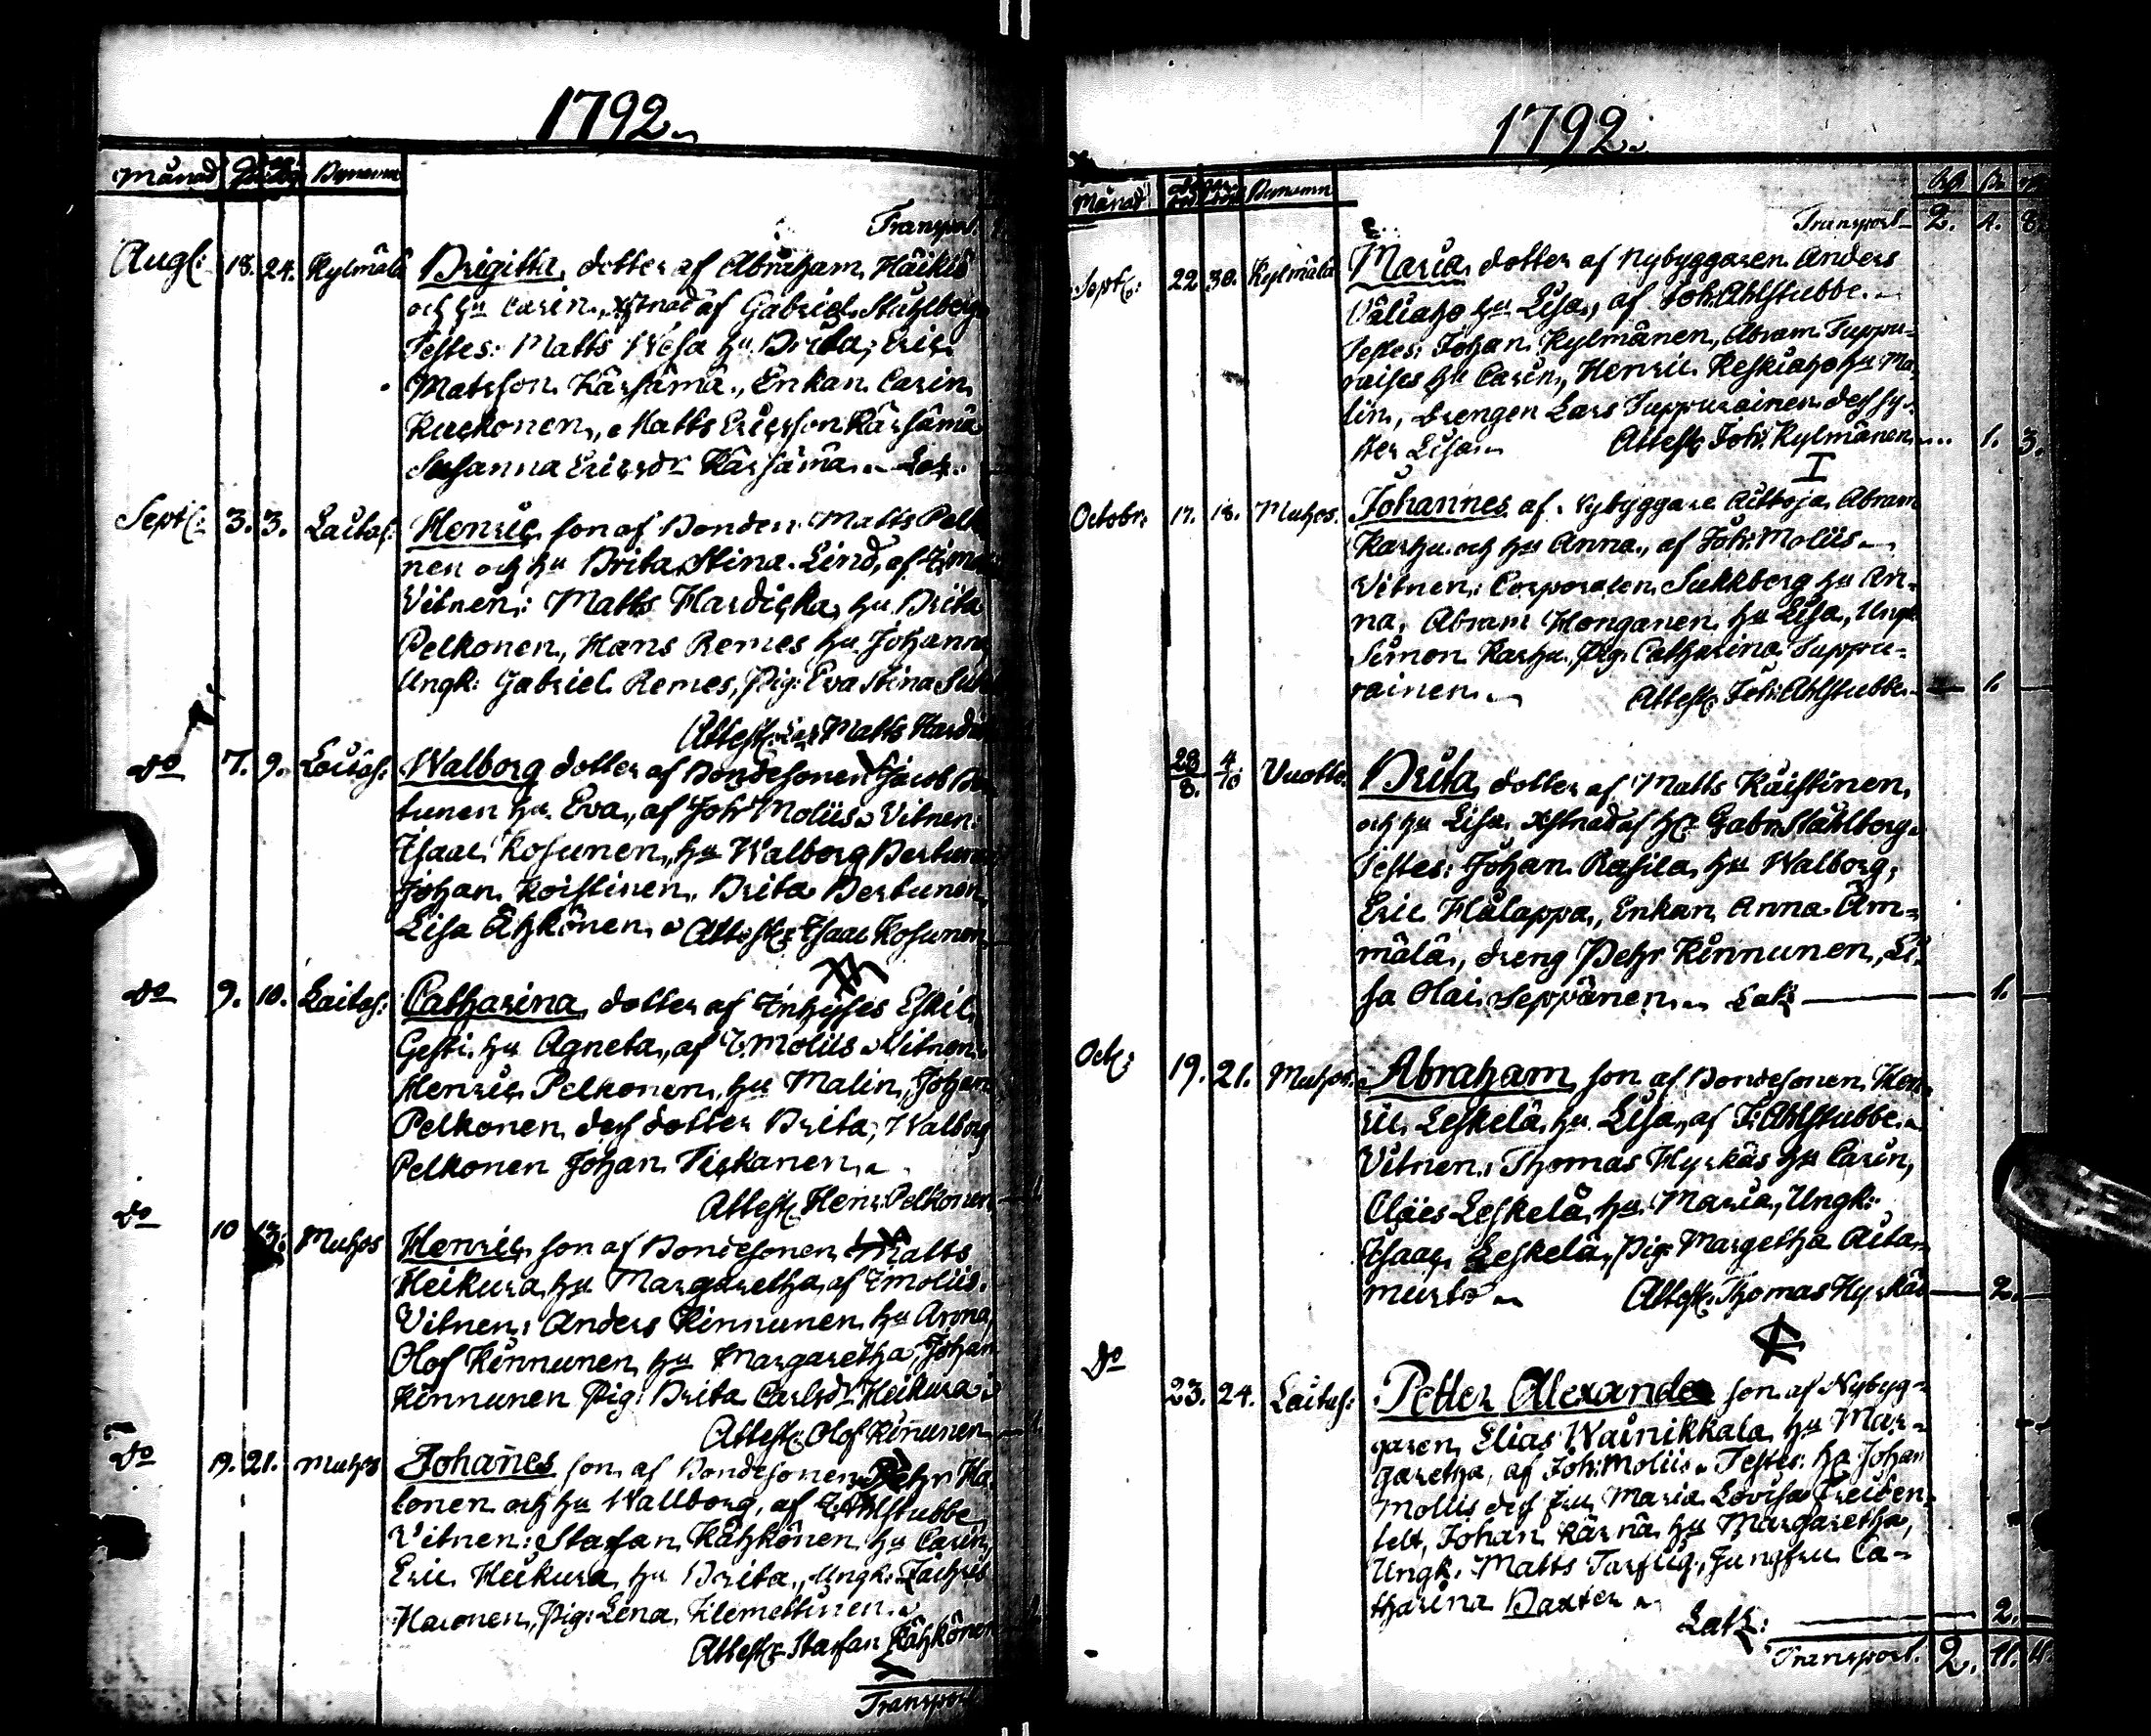 1792.
Månad Byarna
Transport
Augs: 18. 24. Kylmälä Brigitta, dotter af Abraham Häikiö
och hu Carin, xstnad af Gabriel Ståhlberg
Testes: Matts Wesa hu Brita, Eric
Matsson Kärsämä, Enkan Carin
Kuckonen, Matts Ericsson Kärsämä
Susanna Ericsdr Kärsämä. Lat:
Septs: 3. 3. Laitas: Henric son af Bonden Matts Pelko
nen och hu Brita Stina Lind, af J: Mo
Vitnen: Matts Hardicka, hu Brita
Pelkonen, Hans Remes hu Johanna
Ungk: Gabriel Remes, Pig: Eva Stina
Attest: Matts Hardic
do 7. 9. Laitas: Walborg dotter af Bondesonen Jacob
tunen hu Eva, af Joh: Moliis. Vitnen:
Isaac Kosunen, hu Walborg Bertunen
Johan Koistinen, Brita Bertunen,
Lisa Ähkönen. Attest: Isaac Kosunen
do 9. 10. Laitas: Catharina, dotter af Inhyses Eskil
Gesti hu Agneta, af J: Moliis. Vitnen:
Henric Pelkonen, hu Malin, Johan
Pelkonen des dotter Brita, Walborg
Pelkonen Johan Tickanen.
Attest: Henr: Pelkonen
do 10 13. Muhos Henric son af Bondesonen Matts
Heikura, hu Margaretha, af J: Moliis.
Vitnen: Anders Kinnunen hu Anna,
Olof Kinnunen hu Margaretha, Johan
Kinnunen Pig: Brita Carlsdr Heikura
Attest: Olof Kinunen
do 19. 21. Muhos Johañes son af Bondesonen Pehr Ha
tonen och hu Wallborg, af J: Ahlstubbe
Vitnen: Staffan Kähkönen hu Carin,
Eric Heikura hu Brita, Ungk: Zachris
Hatonen, Pig: Lena Klemettinen.
Attest: Staffan Kähkönen
Transport
1792.
Månad Byarna
Transport 2. 4. 8.
Septs: 22 30. Kylmälä Maria, dotter af Nybyggaren Anders
Väliaho hu Lisa, af Joh: Ahlstubbe.
Testes: Johan Kylmänen, Abram Tuppu-
raises hu Carin, Henric Keskiaho hu Ma
lin, drengen Lars Tuppurainen des sy-
ster Lisa. Attest: Joh: Kylmänen 1. 3.
Octobr: 17. 18. Muhos. Johannes af Nybyggare Aittoja Abram
Karhu och hu Anna, af Joh: Moliis.
Vitnen: Corporalen Sukkberg hu An-
na, Abram Honganen hu Lisa, Ungk
Simon Karhu, Pig: Catharina Tuppu-
rainen. Attest: Joh: Ahlstubbe 1.
28/8. 4/10 Vuotto. Brita, dotter af Matts Kaistinen,
och hu Lisa, xstnad af Hr Gabr: Ståhlberg.
Testes: Johan Rasila, hu Walborg,
Eric Hålappa, Enkan Anna Äm-
mälä, dreng Pehr Kinnunen, Li-
sa Olai Seppänen. Lat: 1.
Octs: 19. 21. Muhos. Abraham son af Bondesonen Hen-
ric Leskelä hu Lisa, af J: Ahlstubbe.
Vitnen: Thomas Hyrkäs hu Carin,
Claes Leskelä hu Maria, Ungk:
Isaac Leskelä, Pig: Margetha Aita-
murto. Attest: Thomas Hyrkäs 2.
do 23. 24. Laitas: Petter Alexander son af Nybyg-
garen Elias Wainikkala hu Mar-
garetha, af Joh: Moliis. Testes: Hr Johan
Mollis des fru Maria Lovisa Creiden-
felt, Johan Kärnä hu Margaretha,
Ungk: Matts Tarflig, Jungfru Ca-
tharina Baxter.
Lat: 2.
Transport. 2. 11. 11.